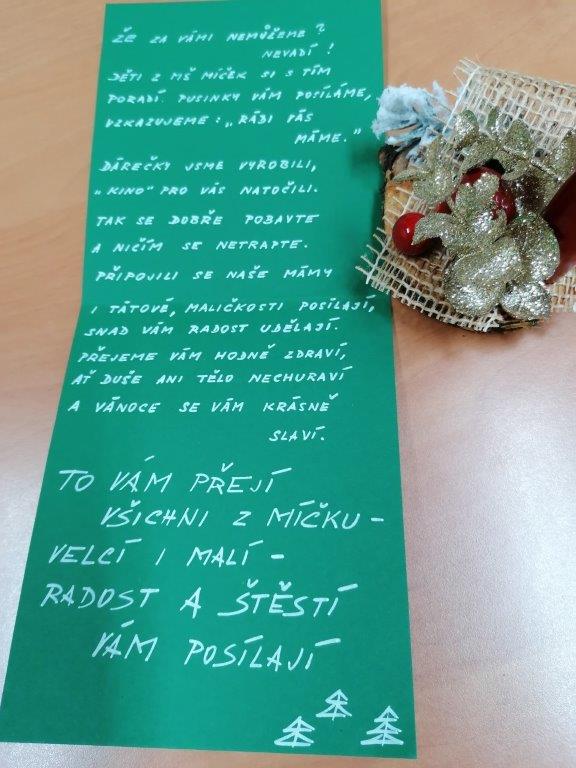 ŽE ZA VÁMI NEMŮŽEME?
NEVADÍ!
DĚTI Z MŠ MÍČEK SI S TÍM
PORADÍ. PUSINKY VÁM POSÍLÁME,
VZKAZUJEME: „RÁDI VÁS
MÁME."
DÁREČKY JSME VYROBILI,
„KINO" PRO VÁS NATOČILI.
TAK SE DOBŘE POBAVTE
A NIČÍM SE NETRAPTE.
PŘIPOJILI SE NAŠE MÁMY
I TÁTOVÉ, MALIČKOSTI POSÍLAJÍ,
SNAD VÁM RADOST UDĚLAJÍ.
PŘEJEME VÁM HODNĚ ZDRAVÍ,
AŤ DUŠE ANI TĚLO NECHURAVÍ
A VÁNOCE SE VÁM KRÁSNĚ
SLAVÍ.
TO VÁM PŘEJÍ
VŠICHNI Z MÍČKU -
VELCÍ I MALÍ -
RADOST A ŠTĚSTÍ
VÁM POSÍLAJÍ